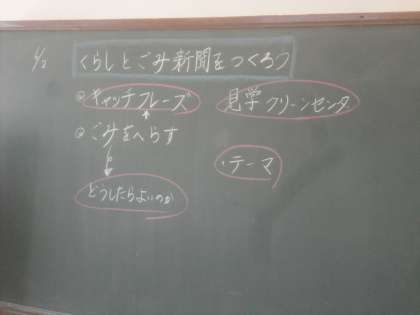 6/2 くらしとごみ新聞をつくろう
・キャッチフレーズ
見学クリーンセンタ
・ごみをへらす
・テーマ
どうしたらよいのか